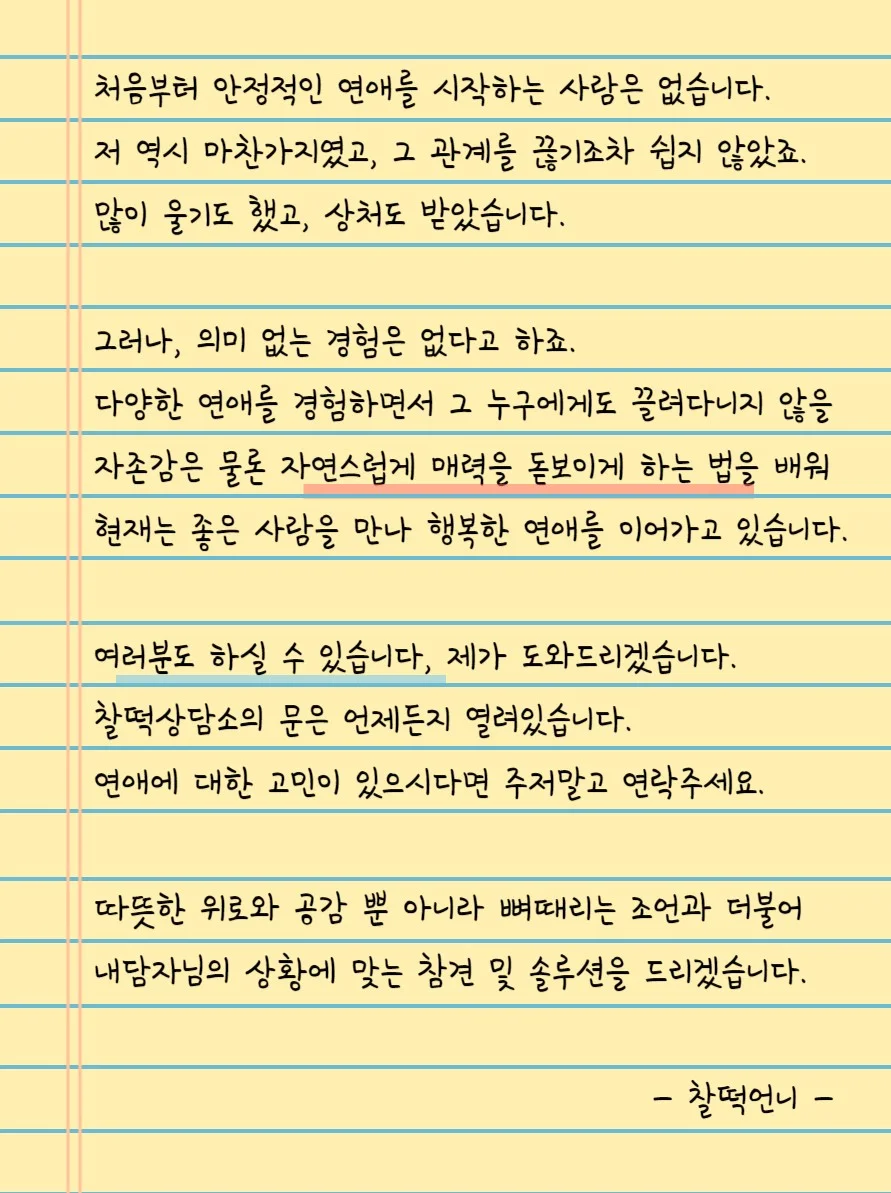 처음부터 안정적인 연애를 시작하는 사람은 없습니다.
저 역시 마찬가지였고, 그 관계를 끊기조차 쉽지 않았죠.
많이 울기도 했고, 상처도 받았습니다.
그러나, 의미 없는 경험은 없다고 하죠.
다양한 연애를 경험하면서 그 누구에게도 끌려다니지 않을
자존감은 물론 자연스럽게 매력을 돋보이게 하는 법을 배워
현재는 좋은 사람을 만나 행복한 연애를 이어가고 있습니다.
여러분도 하실 수 있습니다, 제가 도와드리겠습니다.
찰떡상담소의 문은 언제든지 열려있습니다.
연애에 대한 고민이 있으시다면 주저말고 연락주세요.
따뜻한 위로와 공감 뿐 아니라 뼈때리는 조언과 더불어
내담자님의 상황에 맞는 참견 및 솔루션을 드리겠습니다.
- 찰떡언니 -